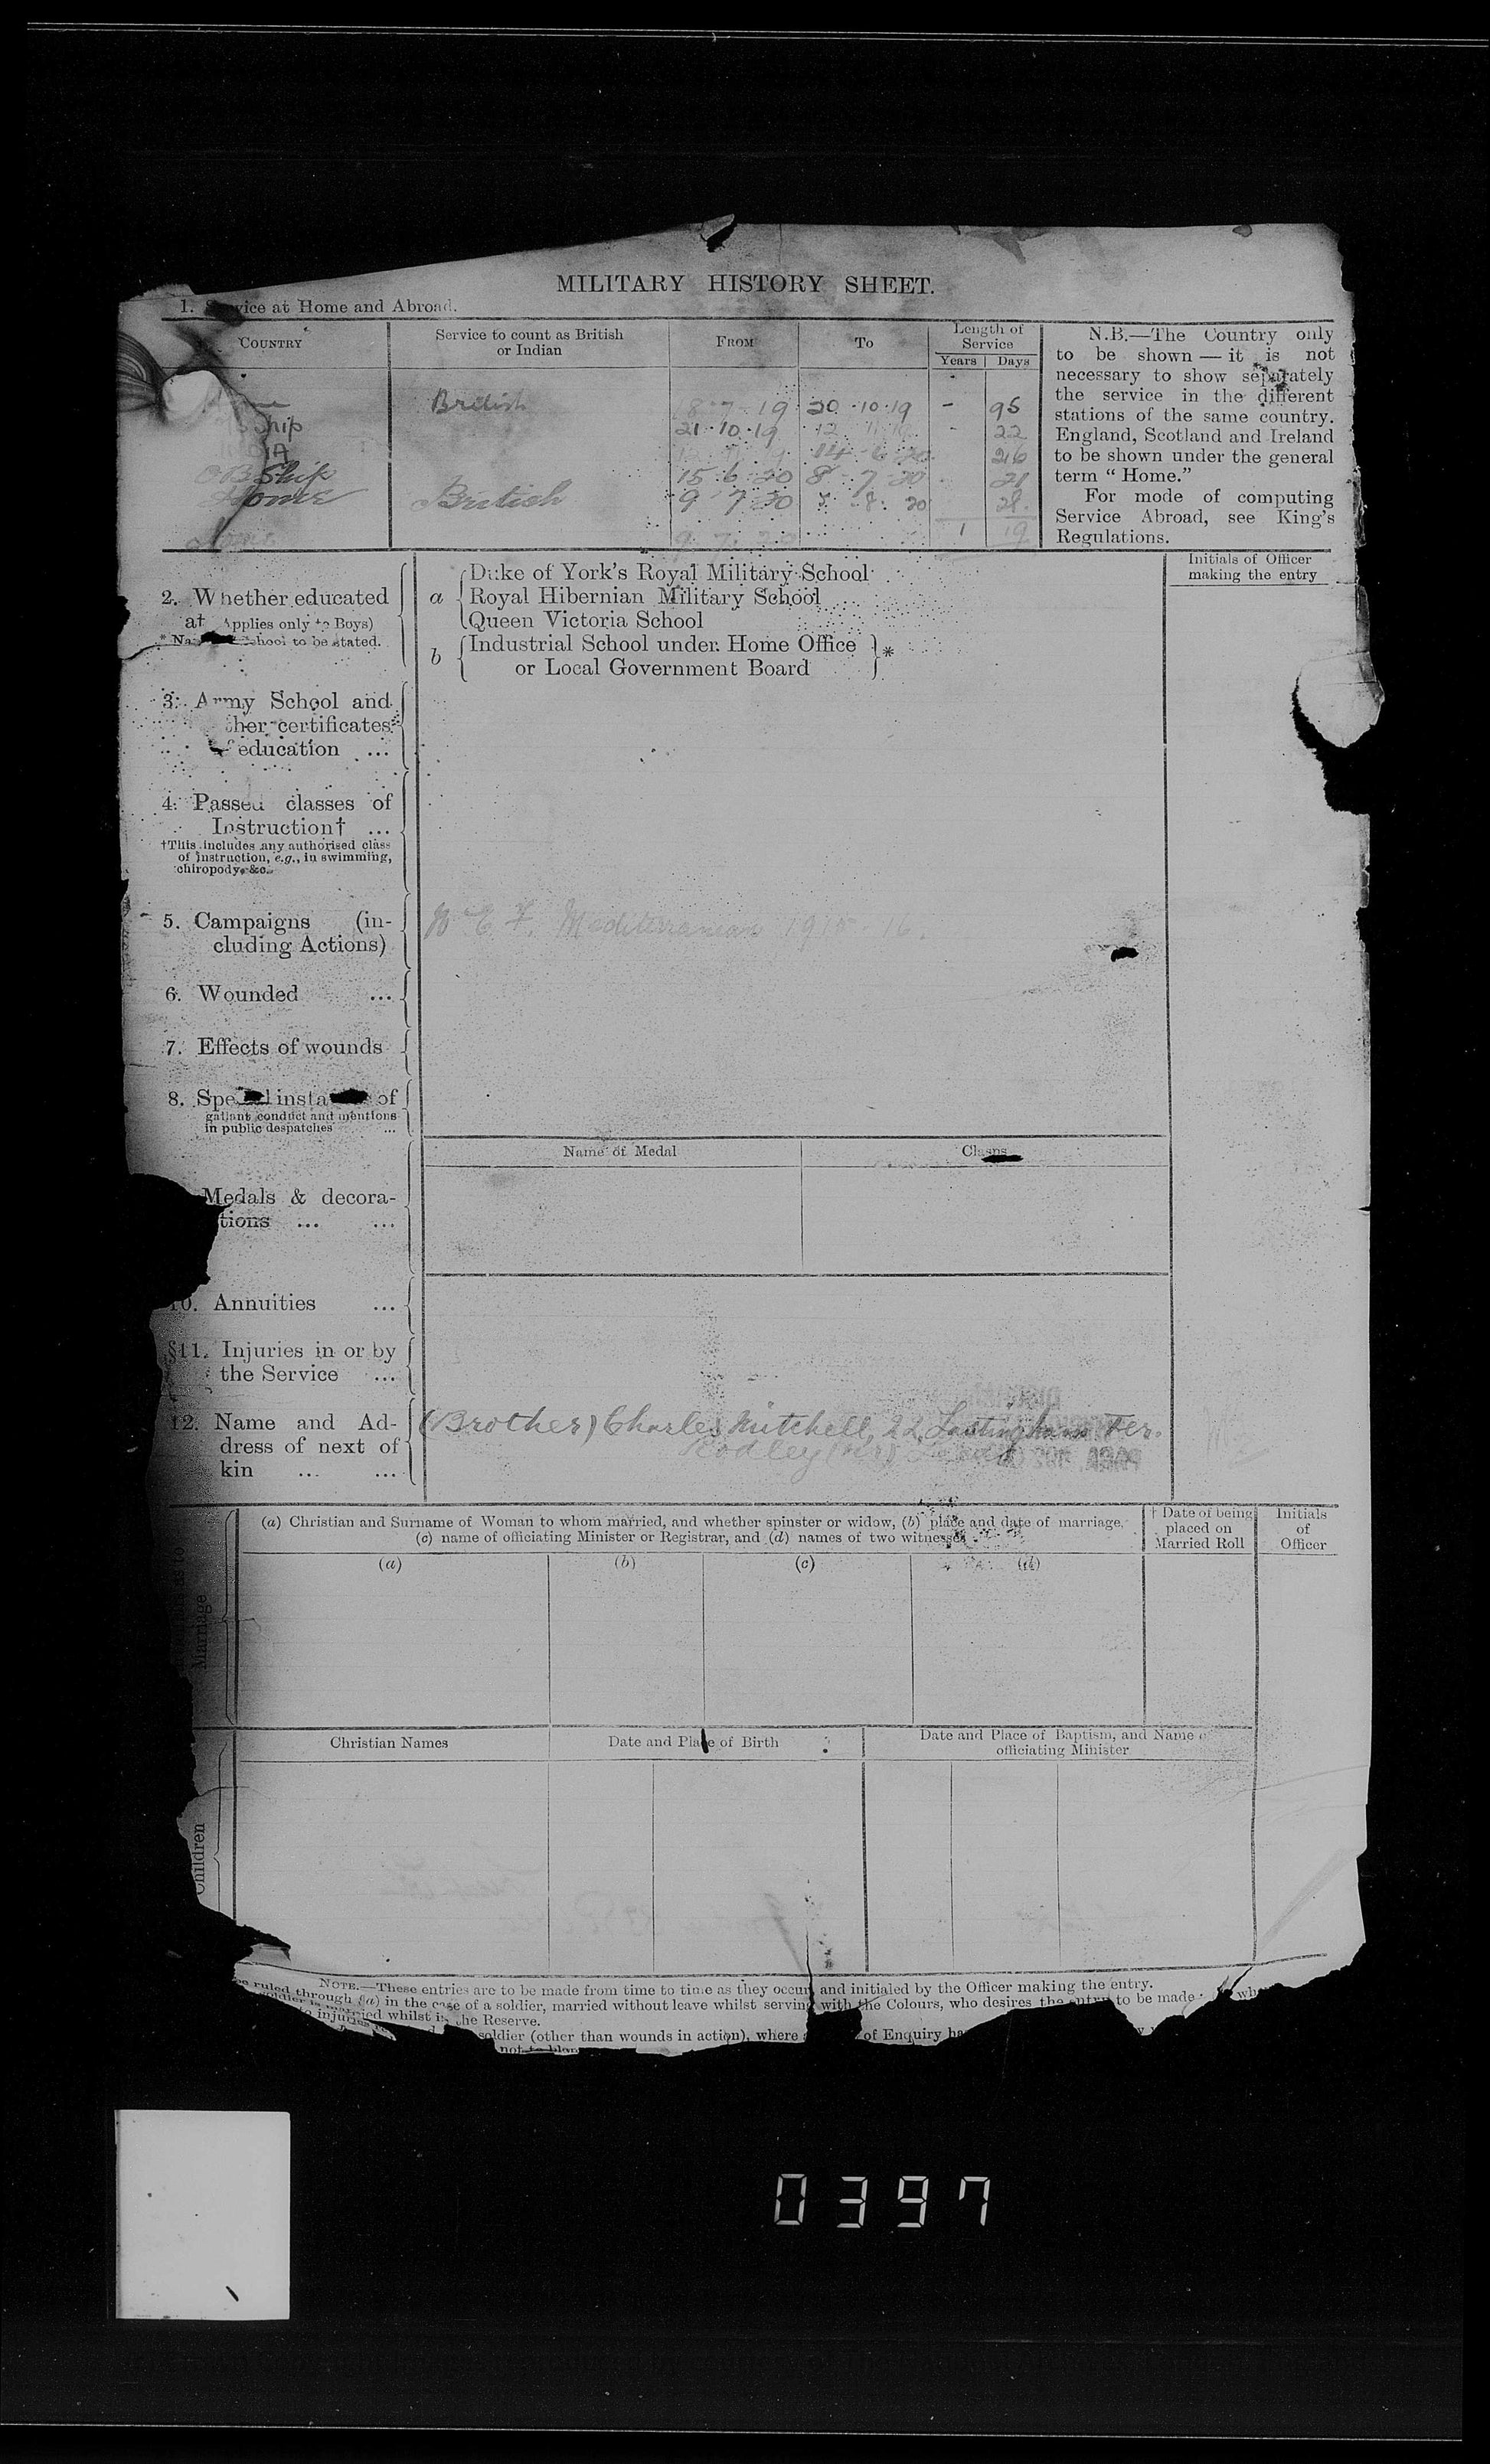 MILITARY HISTORY SHEET.
1. Service at Home and Abroad.
COUNTRY
Service to count as British
or Indian
FROM
To
Length of
Service
Years Days
British 8 7 19 20 · 10 · 19 - 95
Ship 21 · 10 · 19 12 - 22
14 6 20
Ship 15 · 6 · 20 8 - 7 20 21
Home British 9 7 20 8 · 20 28
9 7 20 1 19
N.B.—The Country only
to be shown — it is not
necessary to show separately
the service in the different
stations of the same country.
England, Scotland and Ireland
to be shown under the general
term “ Home.”
For mode of computing
Service Abroad, see King's
Regulations.
Initials of Officer
making the entry
2. Whether educated
at (Applies only to Boys)
* Na School to be stated.
a
Duke of York's Royal Military School
Royal Hibernian Military School
Queen Victoria School
b
Industrial School under Home Office
or Local Government Board
*
3. Army School and
other certificates
of education ...
4. Passed classes of
Instruction† ...
†This includes any authorised class
of instruction, e.g., in swimming,
chiropody, &c.
5. Campaigns (in-
cluding Actions)
E. F. Mediterranean 1915 - 16.
6. Wounded ...
7. Effects of wounds
8. Special instances of
gallant conduct and mentions
in public despatches ...
Name of Medal
Clasps
Medals & decora-
tions ... ...
10. Annuities ...
§11. Injuries in or by
the Service ...
12. Name and Ad-
dress of next of
kin ... ...
(Brother) Charles Mitchell, 22 Lastingham Ter.
Rodley (Nr) Leeds
(a) Christian and Surname of Woman to whom married, and whether spinster or widow, (b) place and date of marriage,
(c) name of officiating Minister or Registrar, and (d) names of two witnesses
† Date of being
placed on
Married Roll
Initials
of
Officer
(a) (b) (c) (d)
Marriage
Christian Names
Date and Place of Birth
Date and Place of Baptism, and Name
officiating Minister
Children
NOTE.—These entries are to be made from time to time as they occur and initialed by the Officer making the entry.
ruled through (a) in the case of a soldier, married without leave whilst serving with the Colours, who desires the entry to be made
married whilst in the Reserve.
injuries
soldier (other than wounds in action), where of Enquiry
not to
0397